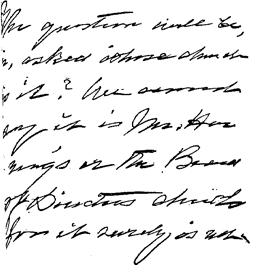 The question will be,
asked whose church
is it? We cannot
say it is Mr. Han
ning's or The Board
of Directors church
for it surely is not.